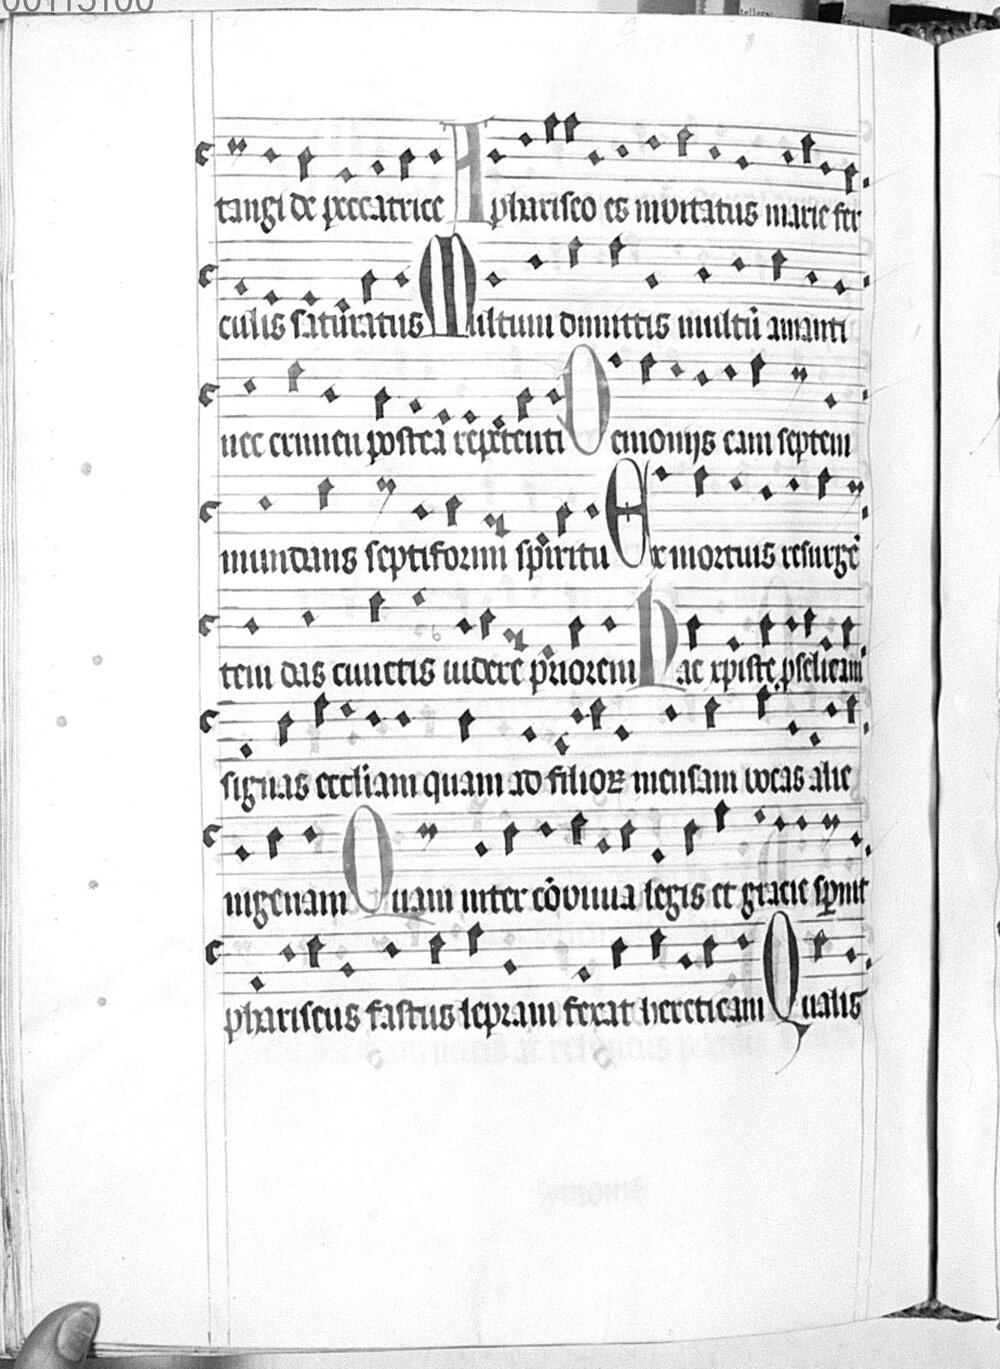 00113100
tangi de peccatrice A phariseo es invitatus marie fer
culis saturatus Multum dimittis multū amanti
nec crimen postea repetenti Demonijs eam septem
mundans septiformi spiritu Ex mortuis resurgē
tem das cunctis videre priorem Hac xpiste pselicam
signas eccliam quam ad filioꝝ mensam vocas alie
nigenam Quam inter cōvivia legis et gracie spnit
phariseus fastus lepram fexat hereticam Qualis